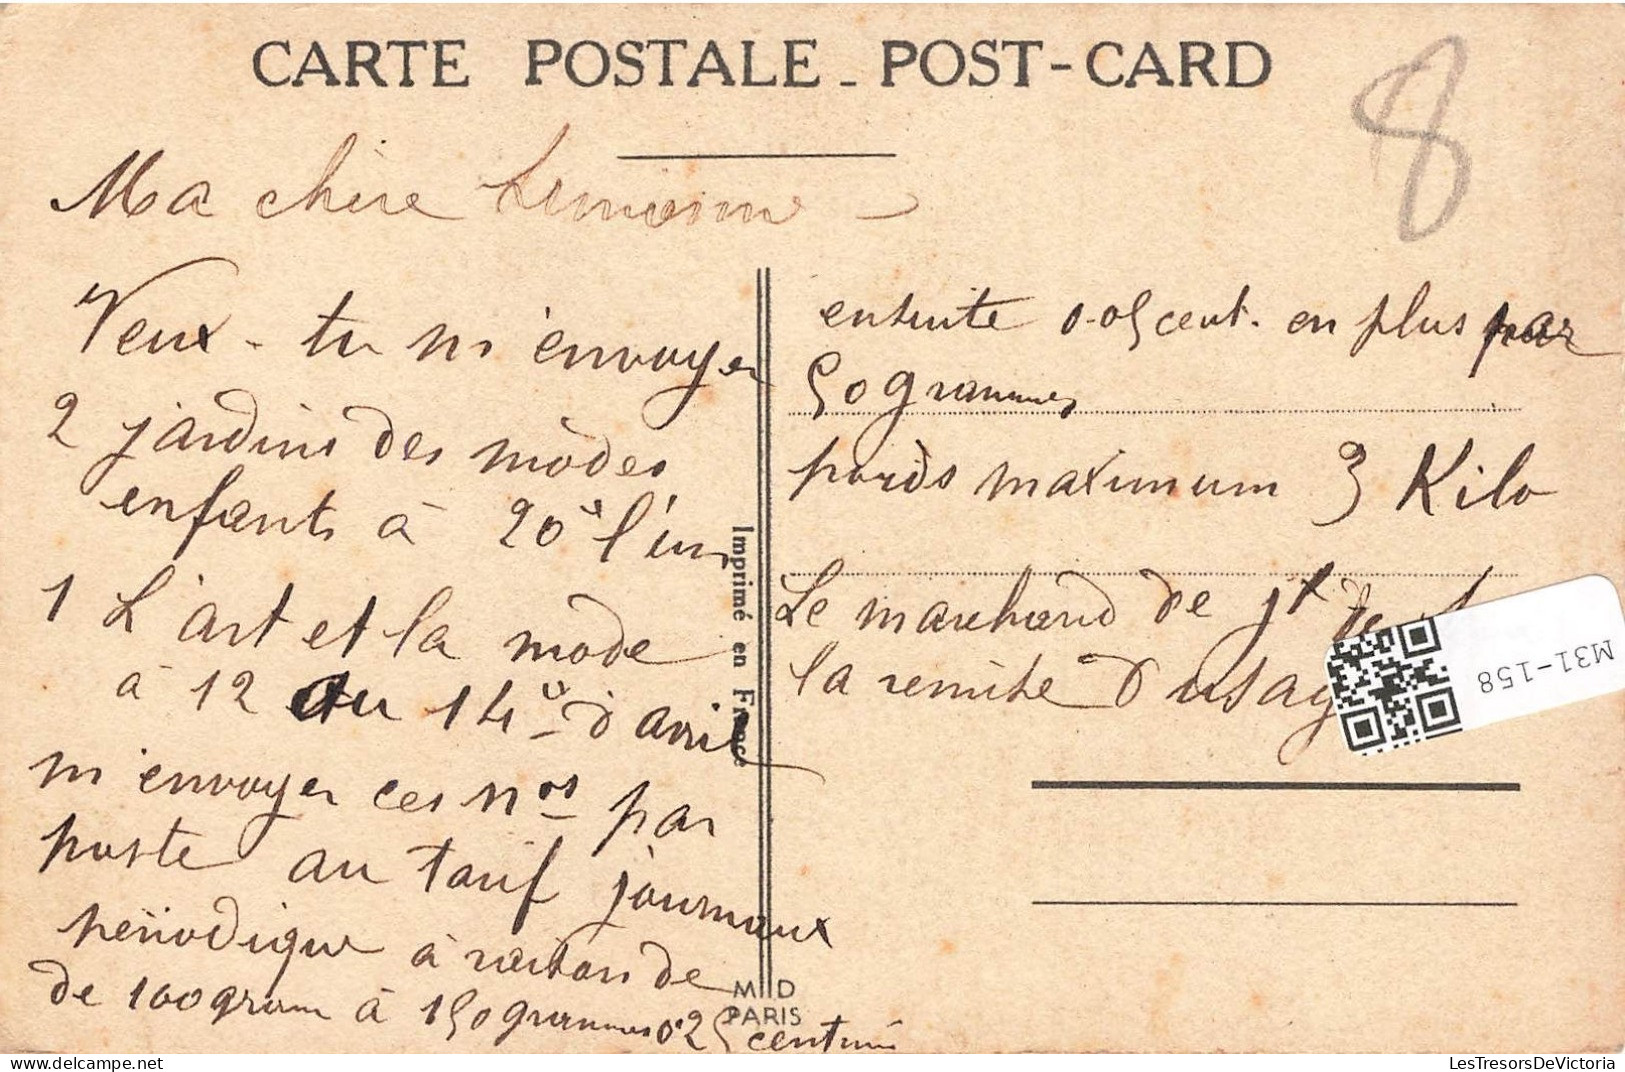 CARTE POSTALE - POST-CARD
8
Ma chère
Veux-tu m'envoyer
2 jardins des modes
enfants à 20 l'un
1 L'art et la mode
à 12 ou 14 d'avril
m'envoyer ces nos par
poste au tarif journaux
périodique à raison de
de 100 gram à 150 grammes 0.25 centimes
ensuite 0.05 cent. en plus par
50 grammes
poids maximum 3 Kilo
Le marchand de jx de
la remise d'usag
Imprimé en France
M D
PARIS
M31-158
LesTresorsDeVictoria